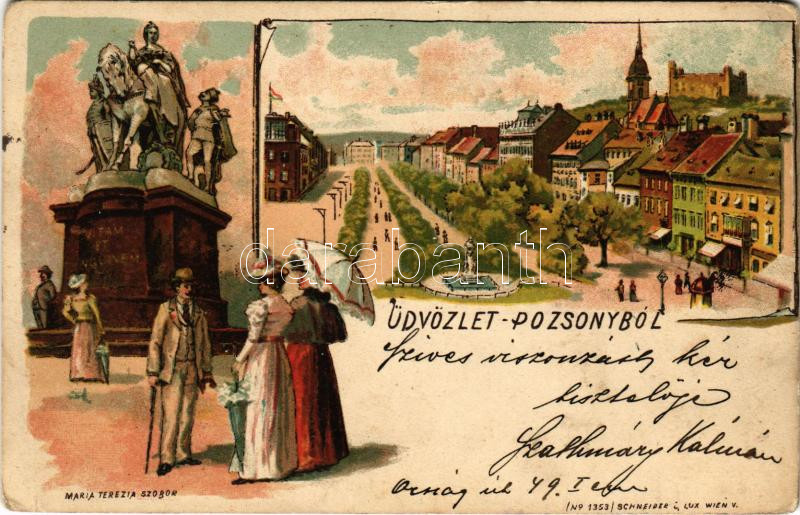 VITAM
ET
SANGUINEM
darabanth
ÜDVÖZLET-POZSONYBÓL
Szives viszonzást kér
tisztelője
Szathmáry Kálmán
Ország út 49. I em
MARIA TEREZIA SZOBOR
(No 1353) SCHNEIDER & LUX WIEN V.